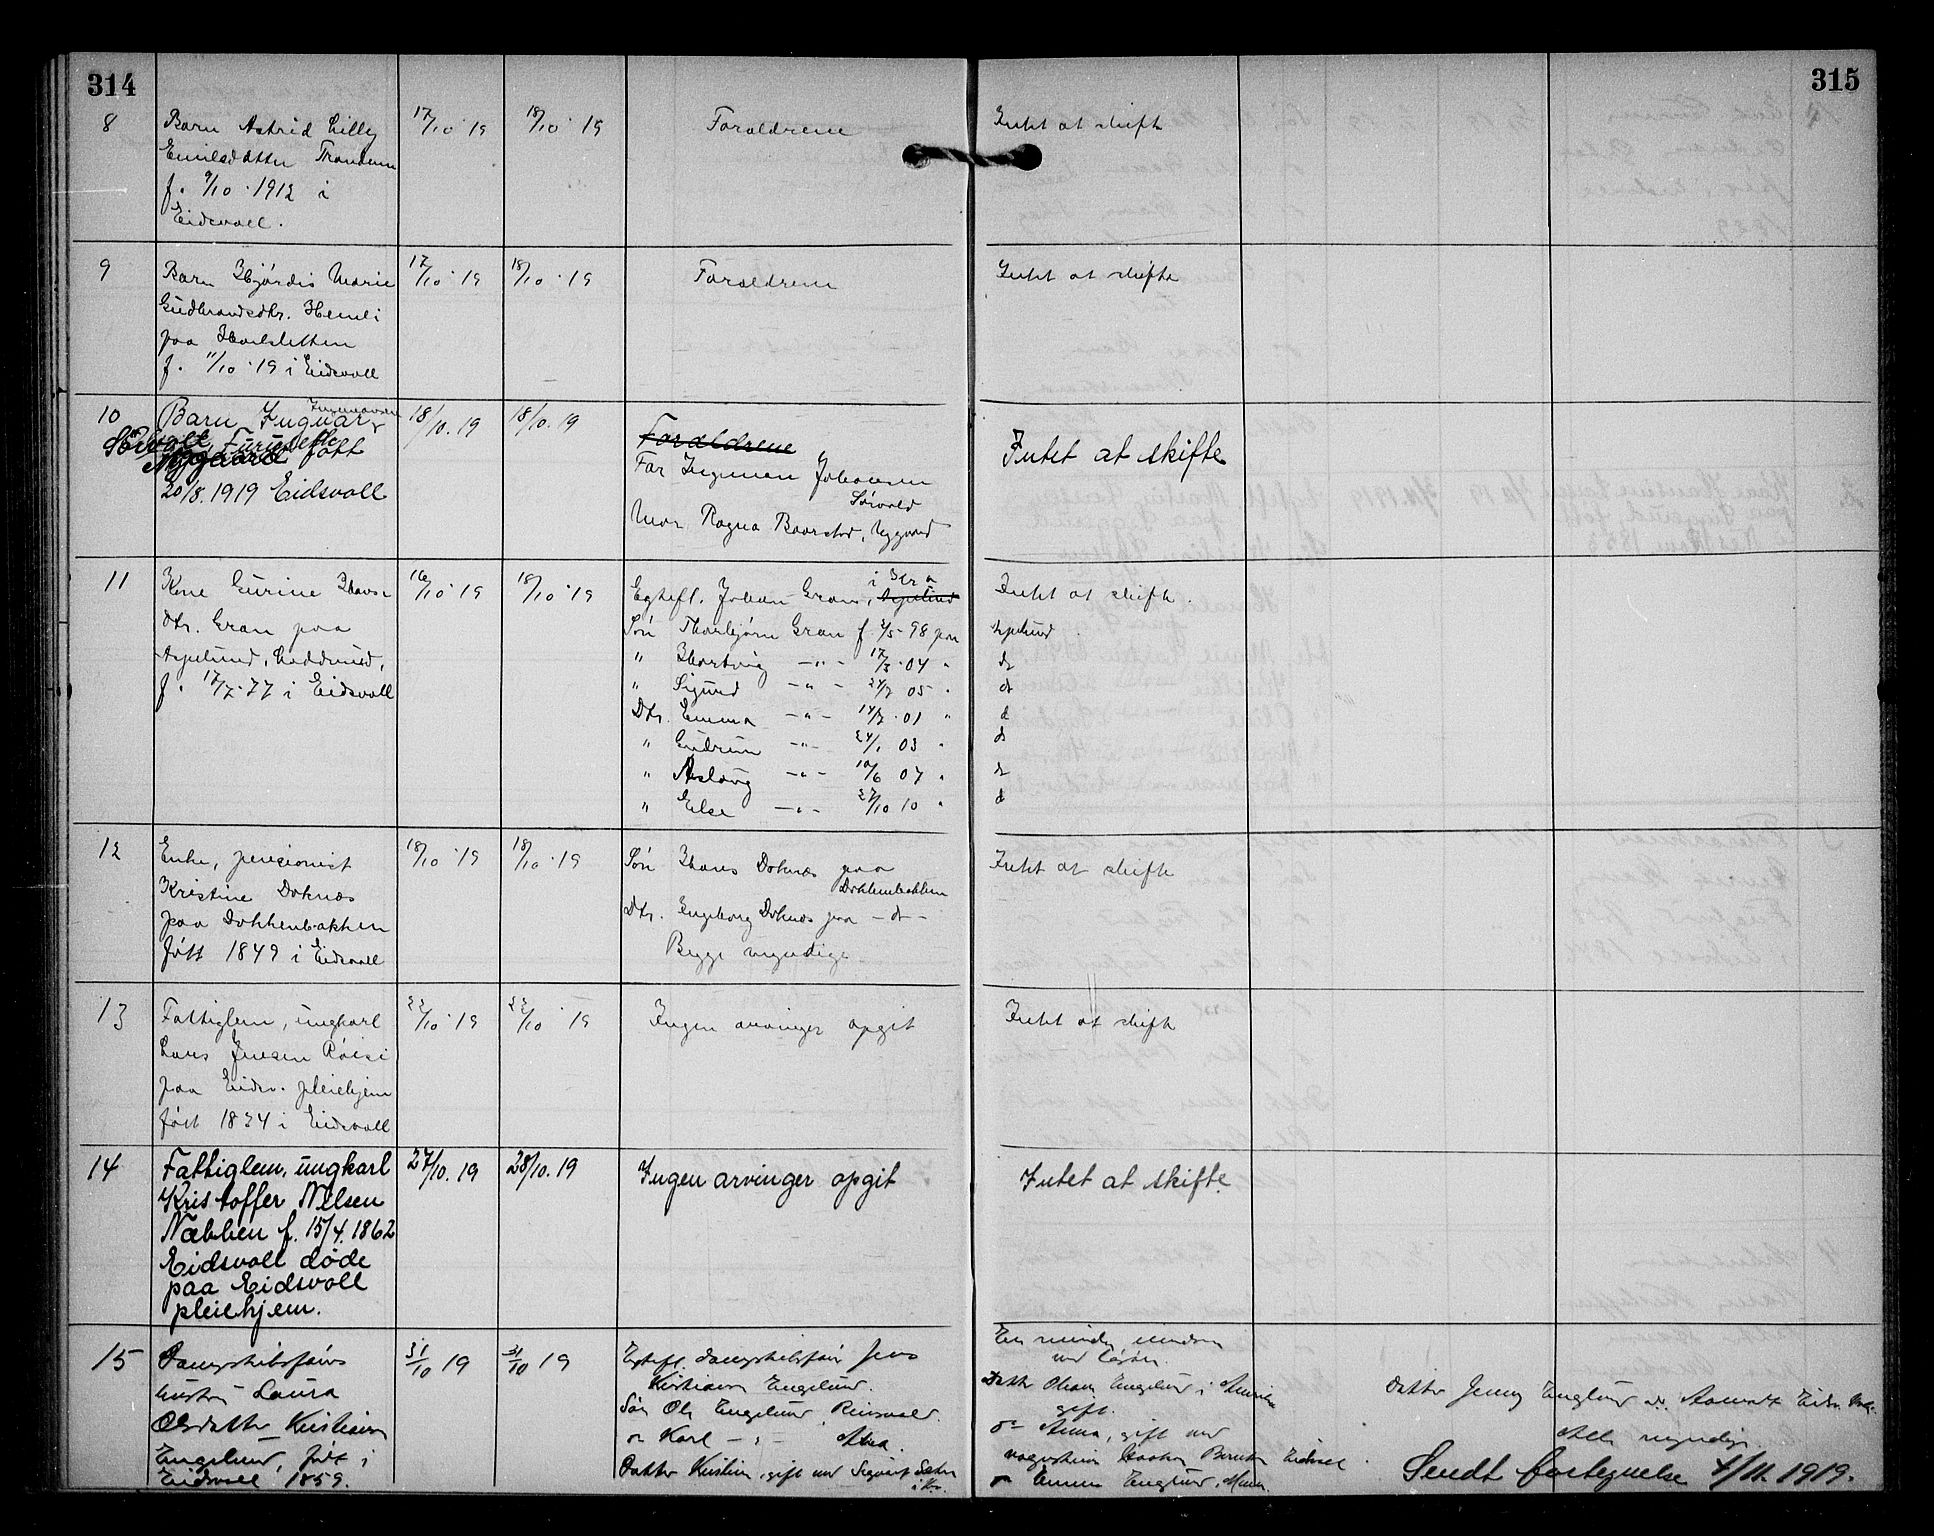 314
315
8
Barn Astrid Lilly
Emilsdatter Trandum
f. 9/10 · 1912 i
Eidsvoll.
17/10 · 19
18/10 · 19
Foraldrene
Intet at skifte
9
Barn Hjördis Marie
Gudbrandsdtr. Hemli
paa
f. 11/10 · 19 i Eidsvoll
17/10 · 19
18/10 · 19
Foraldrene
Intet at skifte
10
Barn Ingvar Ingmansen
Sörvald, Furusett
Nygaard født
20/8. 1919 Eidsvoll
18/10. 19
18/10. 19
Foraldrene
Far Ingman Johansen
Sörvald
Mor Ragna Baarstad, Nygaard
Intet at skifte
11
Kone Gurine Hans-
dtr. Gran paa
Aspelund,
f. 17/7 · 77 i Eidsvoll
16/10 · 19
18/10 · 19
Egtefl. Johan Gran, i
Sön Thorbjörn Gran f. 2/5 - 98 paa Aspelund
" Hartvig - " - 17/3 · 04 " do
" Sigurd - " - 24/7 05 " do
Dtr. Emma - " - 14/3 · 01 " do
" Gudrun - " - 24/1 03 " do
" Aslaug - " - 10/6 07 " do
" Else - " - 27/10 10 " do
Intet at skifte.
12
Enke, pensionist
Kristine Doknæs
paa Dokkenbakken
född 1849 i Eidsvoll
18/10 · 19
18/10 · 19
Sön Hans Doknæs paa
Dokkenbakken
Dtr. Ingeborg Doknæs paa - do -
Begge myndige
Intet at skifte
13
Fattiglem, ungkarl
Lars Jensen Röisi
paa Eidsv. pleiehjem
født 1834 i Eidsvoll
22/10 · 19
22/10 · 19
Ingen arvinger opgit
Intet at skifte
14
Fattiglem, ungkarl
Kristoffer Nilsen
Næbben f. 15/4. 1862
Eidsvoll døde
paa Eidsvoll
pleiehjem.
27/10. 19
28/10. 19
Ingen arvinger opgit
Intet at skifte.
15
Dampskibsförers
hustru Laura
Olsdatter Kristiansen
Engelund, født i
Eidsvoll 1859.
31/10 19
31/10 19
Egtefl. dampskibsförer Jens
Kristiansen Engelund.
Sön Ole Engelund,
do Karl - " -
Datter Kristine, gift med Sigvart
Datter Engelund i Amerika
gift.
do Anna, gift med
Eidsvoll
do Emma Englund,
Datter Jenny Englund
Alle myndige
Sendt fortegnelse 4/11. 1919.